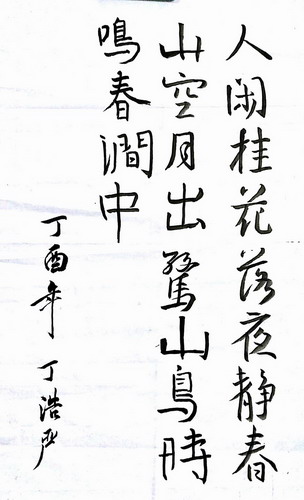 人闲桂花落夜静春
山空月出驚山鳥時
鳴春澗中
丁酉年 丁浩严